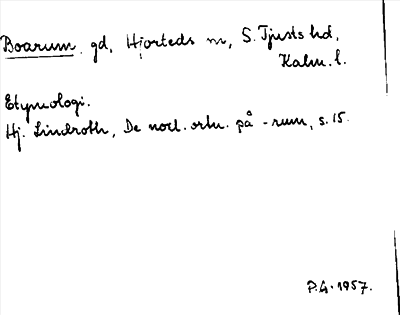 Boarum gd, Hjorteds sn, S. Tjusts hd,
Kalm. l.
Etymologi.
Hj. Lindroth, De nord. ortn. på -rum, s. 15.
P.G. 1957.